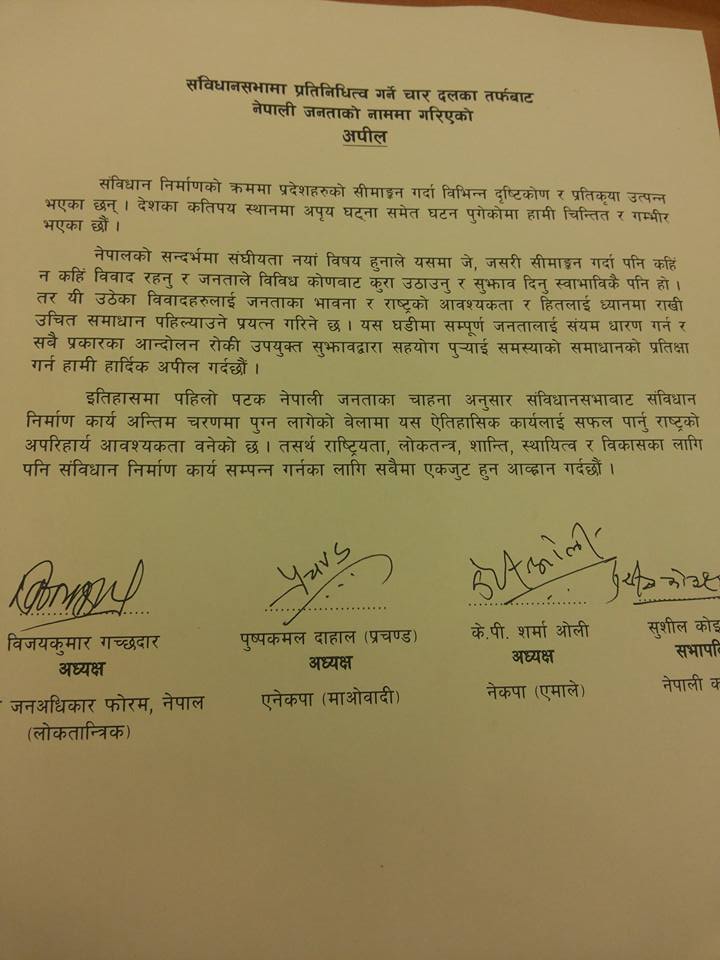 संविधानसभामा प्रतिनिधित्व गर्ने चार दलका तर्फबाट
नेपाली जनताको नाममा गरिएको
अपील
संविधान निर्माणको क्रममा प्रदेशहरुको सीमाङ्कन गर्दा विभिन्न दृष्टिकोण र प्रतिकृया उत्पन्न
भएका छन् । देशका कतिपय स्थानमा अपृय घट्ना समेत घटन पुगेकोमा हामी चिन्तित र गम्भीर
भएका छौं ।
नेपालको सन्दर्भमा संघीयता नयां विषय हुनाले यसमा जे, जसरी सीमाङ्कन गर्दा पनि कहिं
न कहिं विवाद रहनु र जनताले विविध कोणवाट कुरा उठाउनु र सुझाव दिनु स्वाभाविकै पनि हो ।
तर यी उठेका विवादहरुलाई जनताका भावना र राष्ट्रको आवश्यकता र हितलाई ध्यानमा राखी
उचित समाधान पहिल्याउने प्रयत्न गरिने छ । यस घडीमा सम्पूर्ण जनतालाई संयम धारण गर्न र
सवै प्रकारका आन्दोलन रोकी उपयुक्त सुझावद्वारा सहयोग पुऱ्याई समस्याको समाधानको प्रतिक्षा
गर्न हामी हार्दिक अपील गर्दछौं ।
इतिहासमा पहिलो पटक नेपाली जनताका चाहना अनुसार संविधानसभावाट संविधान
निर्माण कार्य अन्तिम चरणमा पुग्न लागेको बेलामा यस ऐतिहासिक कार्यलाई सफल पार्नु राष्ट्रको
अपरिहार्य आवश्यकता वनेको छ । तसर्थ राष्ट्रियता, लोकतन्त्र, शान्ति, स्थायित्व र विकासका लागि
पनि संविधान निर्माण कार्य सम्पन्न गर्नका लागि सवैमा एकजुट हुन आव्हान गर्दछौं ।
प्रचण्ड के पी ओली
विजयकुमार गच्छदार पुष्पकमल दाहाल (प्रचण्ड) के.पी. शर्मा ओली सुशील कोइ
अध्यक्ष अध्यक्ष अध्यक्ष सभापति
जनअधिकार फोरम, नेपाल एनेकपा (माओवादी) नेकपा (एमाले) नेपाली क
(लोकतान्त्रिक)